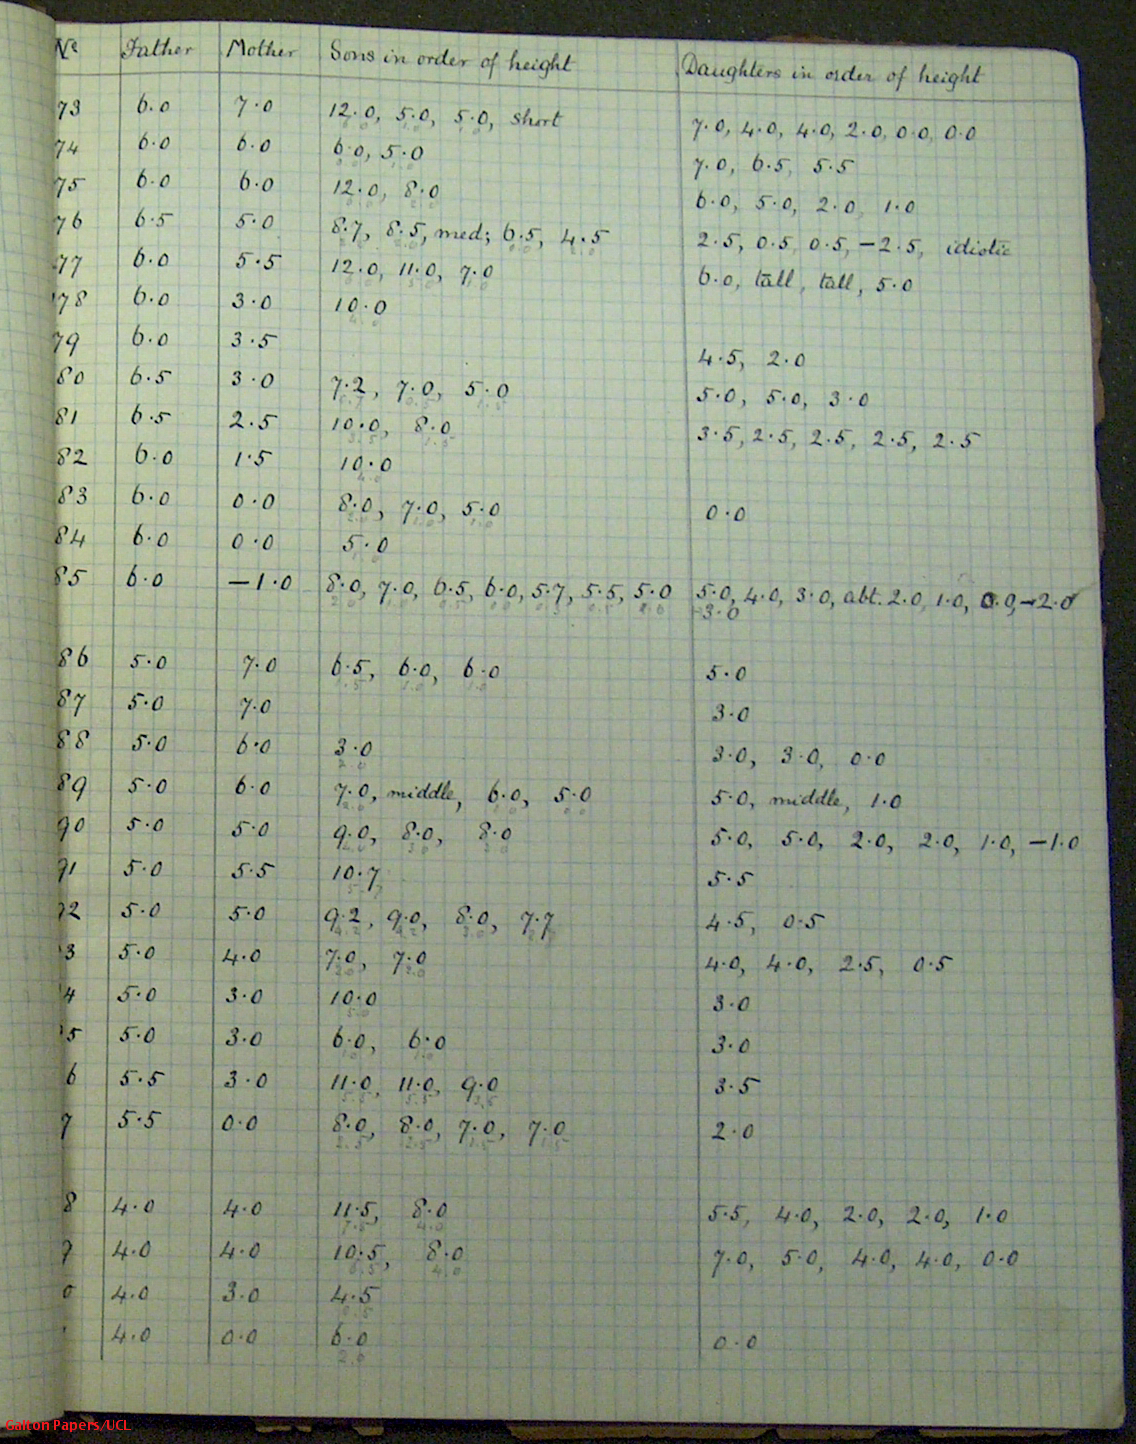 Nº Father Mother Sons in order of height Daughters in order of height
73 6.0 7.0 12.0, 5.0, 5.0, short 7.0, 4.0, 4.0, 2.0, 0.0, 0.0
74 6.0 6.0 6.0, 5.0 7.0, 6.5, 5.5
75 6.0 6.0 12.0, 8.0 6.0, 5.0, 2.0, 1.0
76 6.5 5.0 8.7, 8.5, med; 6.5, 4.5 2.5, 0.5, 0.5, -2.5, idiotic
77 6.0 5.5 12.0, 11.0, 7.0 6.0, tall, tall, 5.0
78 6.0 3.0 10.0
79 6.0 3.5 4.5, 2.0
80 6.5 3.0 7.2, 7.0, 5.0 5.0, 5.0, 3.0
81 6.5 2.5 10.0, 8.0 3.5, 2.5, 2.5, 2.5, 2.5
82 6.0 1.5 10.0
83 6.0 0.0 8.0, 7.0, 5.0 0.0
84 6.0 0.0 5.0
85 6.0 -1.0 8.0, 7.0, 6.5, 6.0, 5.7, 5.5, 5.0 5.0, 4.0, 3.0, abt. 2.0, 1.0, 0.0, -2.0
-3.0
86 5.0 7.0 6.5, 6.0, 6.0 5.0
87 5.0 7.0 3.0
88 5.0 6.0 3.0 3.0, 3.0, 0.0
89 5.0 6.0 7.0, middle, 6.0, 5.0 5.0, middle, 1.0
90 5.0 5.0 9.0, 8.0, 8.0 5.0, 5.0, 2.0, 2.0, 1.0, -1.0
91 5.0 5.5 10.7 5.5
92 5.0 5.0 9.2, 9.0, 8.0, 7.7 4.5, 0.5
3 5.0 4.0 7.0, 7.0 4.0, 4.0, 2.5, 0.5
4 5.0 3.0 10.0 3.0
5 5.0 3.0 6.0, 6.0 3.0
6 5.5 3.0 11.0, 11.0, 9.0 3.5
7 5.5 0.0 8.0, 8.0, 7.0, 7.0 2.0
8 4.0 4.0 11.5, 8.0 5.5, 4.0, 2.0, 2.0, 1.0
9 4.0 4.0 10.5, 8.0 7.0, 5.0, 4.0, 4.0, 0.0
0 4.0 3.0 4.5
4.0 0.0 6.0 0.0
Galton Papers/UCL